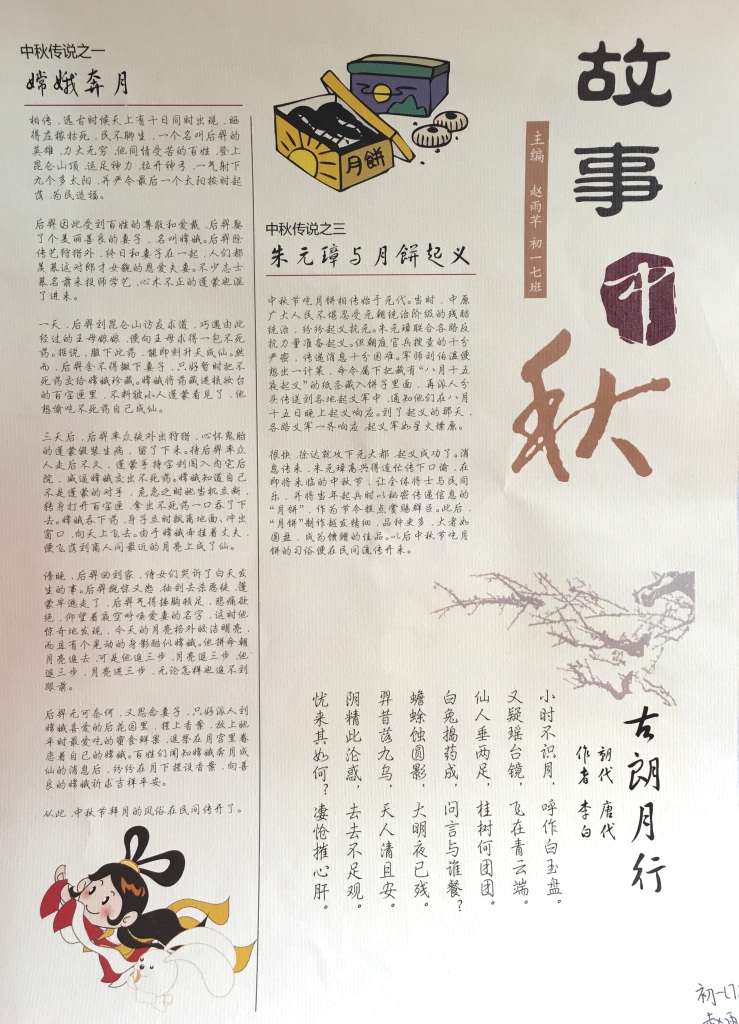 故事中秋
主编 赵雨芊 初一七班
中秋传说之一
嫦娥奔月
相传，远古时候天上有十日同时出现，晒
得庄稼枯死，民不聊生，一个名叫后羿的
英雄，力大无穷，他同情受苦的百姓，登上
昆仑山顶，运足神力，拉开神弓，一气射下
九个多太阳，并严令最后一个太阳按时起
落，为民造福。
后羿因此受到百姓的尊敬和爱戴，后羿娶
了个美丽善良的妻子，名叫嫦娥。后羿除
传艺狩猎外，终日和妻子在一起，人们都
羡慕这对郎才女貌的恩爱夫妻。不少志士
慕名前来投师学艺，心术不正的蓬蒙也混
了进来。
一天，后羿到昆仑山访友求道，巧遇由此
经过的王母娘娘，便向王母求得一包不死
药。据说，服下此药，能即刻升天成仙。然
而，后羿舍不得撇下妻子，只好暂时把不
死药交给嫦娥珍藏。嫦娥将药藏进梳妆台
的百宝匣里，不料被小人蓬蒙看见了，他
想偷吃不死药自己成仙。
三天后，后羿率众徒外出狩猎，心怀鬼胎
的蓬蒙假装生病，留了下来。待后羿率众
人走后不久，蓬蒙手持宝剑闯入内宅后
院，威逼嫦娥交出不死药。嫦娥知道自己
不是蓬蒙的对手，危急之时她当机立断，
转身打开百宝匣，拿出不死药一口吞了下
去。嫦娥吞下药，身子立时飘离地面、冲出
窗口，向天上飞去。由于嫦娥牵挂着丈夫，
便飞落到离人间最近的月亮上成了仙。
傍晚，后羿回到家，侍女们哭诉了白天发
生的事。后羿既惊又怒，抽剑去杀恶徒，蓬
蒙早逃走了，后羿气得捶胸顿足，悲痛欲
绝，仰望着夜空呼唤爱妻的名字，这时他
惊奇地发现，今天的月亮格外皎洁明亮，
而且有个晃动的身影酷似嫦娥。他拼命朝
月亮追去，可是他追三步，月亮退三步，他
退三步，月亮进三步，无论怎样也追不到
跟前。
后羿无可奈何，又思念妻子，只好派人到
嫦娥喜爱的后花园里，摆上香案，放上她
平时最爱吃的蜜食鲜果，遥祭在月宫里眷
恋着自己的嫦娥。百姓们闻知嫦娥奔月成
仙的消息后，纷纷在月下摆设香案，向善
良的嫦娥祈求吉祥平安。
从此，中秋节拜月的风俗在民间传开了。
月餅
中秋传说之三
朱元璋与月饼起义
中秋节吃月饼相传始于元代。当时，中原
广大人民不堪忍受元朝统治阶级的残酷
统治，纷纷起义抗元。朱元璋联合各路反
抗力量准备起义。但朝庭官兵搜查的十分
严密，传递消息十分困难。军师刘伯温便
想出一计策，命令属下把藏有“八月十五
夜起义”的纸条藏入饼子里面，再派人分
头传送到各地起义军中，通知他们在八月
十五日晚上起义响应。到了起义的那天，
各路义军一齐响应，起义军如星火燎原。
很快，徐达就攻下元大都，起义成功了。消
息传来，朱元璋高兴得连忙传下口谕，在
即将来临的中秋节，让全体将士与民同
乐，并将当年起兵时以秘密传递信息的
“月饼”，作为节令糕点赏赐群臣。此后，
“月饼”制作越发精细，品种更多，大者如
圆盘，成为馈赠的佳品。以后中秋节吃月
饼的习俗便在民间流传开来。
古朗月行
朝代 唐代
作者 李白
小时不识月，呼作白玉盘。
又疑瑶台镜，飞在青云端。
仙人垂两足，桂树何团团。
白兔捣药成，问言与谁餐？
蟾蜍蚀圆影，大明夜已残。
羿昔落九乌，天人清且安。
阴精此沦惑，去去不足观。
忧来其如何？凄怆摧心肝。
初一17